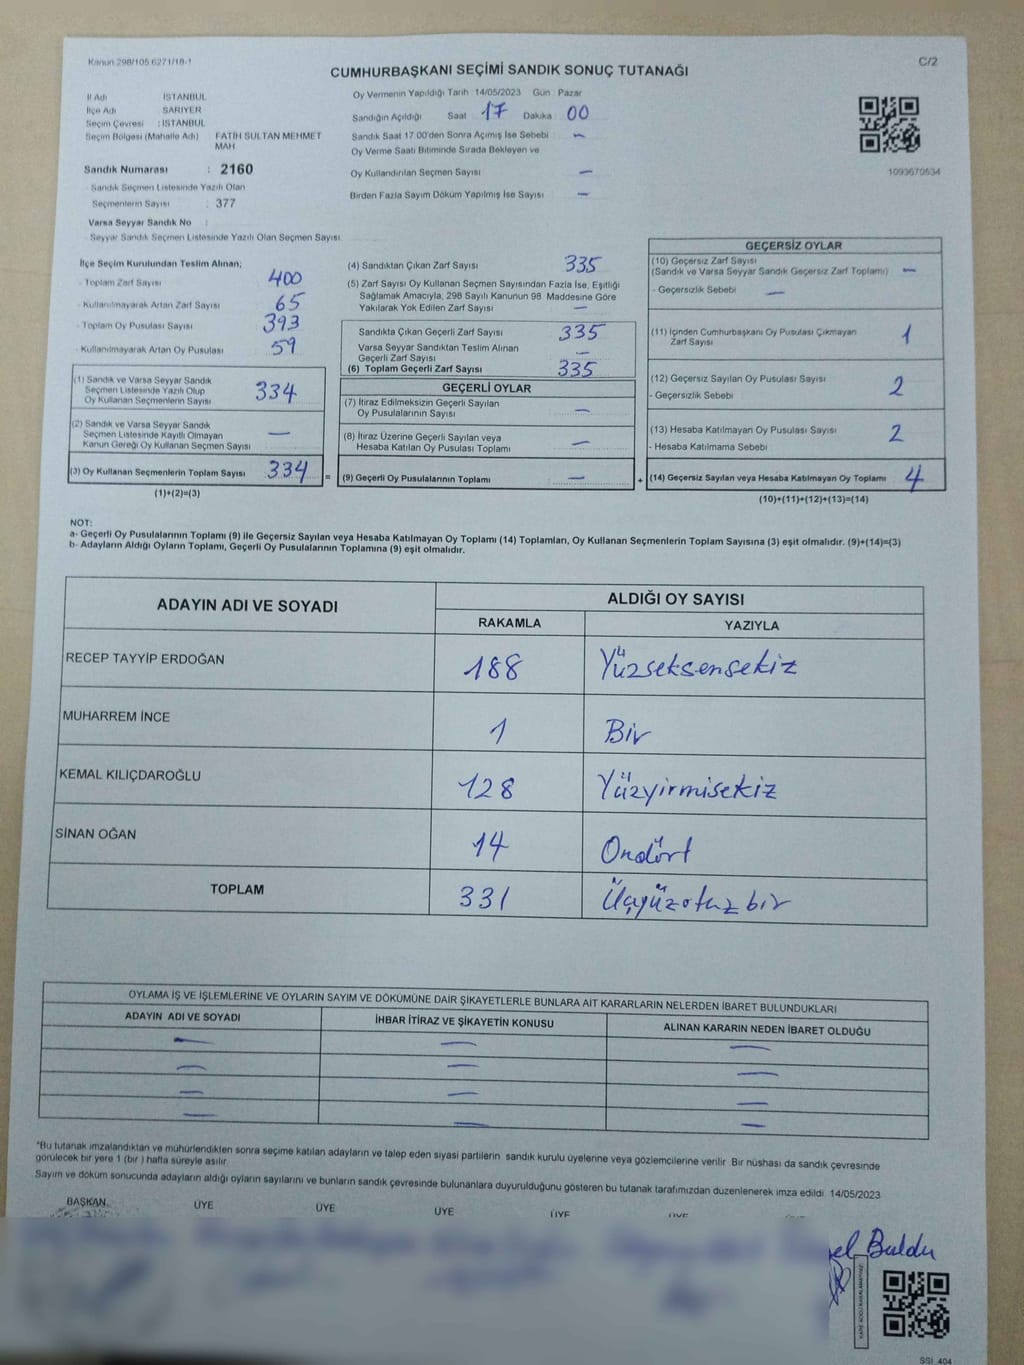 Kanun 298/105 6271/18-1
C/2
CUMHURBAŞKANI SEÇİMİ SANDIK SONUÇ TUTANAĞI
İl Adı İSTANBUL
İlçe Adı SARIYER
Seçim Çevresi : İSTANBUL
Seçim Bölgesi (Mahalle Adı) FATİH SULTAN MEHMET
MAH
Sandık Numarası : 2160
- Sandık Seçmen Listesinde Yazılı Olan
Seçmenlerin Sayısı : 377
Varsa Seyyar Sandık No :
- Seyyar Sandık Seçmen Listesinde Yazılı Olan Seçmen Sayısı
Oy Vermenin Yapıldığı Tarih 14/05/2023 Gün : Pazar
Sandığın Açıldığı Saat : 17 Dakika : 00
Sandık Saat 17.00'den Sonra Açılmış İse Sebebi : -
Oy Verme Saati Bitiminde Sırada Bekleyen ve
Oy Kullandırılan Seçmen Sayısı -
Birden Fazla Sayım Döküm Yapılmış İse Sayısı -
1093670534
İlçe Seçim Kurulundan Teslim Alınan;
- Toplam Zarf Sayısı 400
- Kullanılmayarak Artan Zarf Sayısı 65
- Toplam Oy Pusulası Sayısı 393
- Kullanılmayarak Artan Oy Pusulası 59
(1) Sandık ve Varsa Seyyar Sandık
Seçmen Listesinde Yazılı Olup
Oy Kullanan Seçmenlerin Sayısı 334
(2) Sandık ve Varsa Seyyar Sandık
Seçmen Listesinde Kayıtlı Olmayan
Kanun Gereği Oy Kullanan Seçmen Sayısı -
(3) Oy Kullanan Seçmenlerin Toplam Sayısı 334
(1)+(2)=(3)
(4) Sandıktan Çıkan Zarf Sayısı 335
(5) Zarf Sayısı Oy Kullanan Seçmen Sayısından Fazla İse, Eşitliği
Sağlamak Amacıyla, 298 Sayılı Kanunun 98. Maddesine Göre
Yakılarak Yok Edilen Zarf Sayısı -
Sandıkta Çıkan Geçerli Zarf Sayısı 335
Varsa Seyyar Sandıktan Teslim Alınan
Geçerli Zarf Sayısı -
(6) Toplam Geçerli Zarf Sayısı 335
GEÇERLİ OYLAR
(7) İtiraz Edilmeksizin Geçerli Sayılan
Oy Pusulalarının Sayısı -
(8) İtiraz Üzerine Geçerli Sayılan veya
Hesaba Katılan Oy Pusulası Toplamı -
= (9) Geçerli Oy Pusulalarının Toplamı -
GEÇERSİZ OYLAR
(10) Geçersiz Zarf Sayısı
(Sandık ve Varsa Seyyar Sandık Geçersiz Zarf Toplamı) -
- Geçersizlik Sebebi -
(11) İçinden Cumhurbaşkanı Oy Pusulası Çıkmayan
Zarf Sayısı 1
(12) Geçersiz Sayılan Oy Pusulası Sayısı 2
- Geçersizlik Sebebi
(13) Hesaba Katılmayan Oy Pusulası Sayısı 2
- Hesaba Katılmama Sebebi
+ (14) Geçersiz Sayılan veya Hesaba Katılmayan Oy Toplamı 4
(10)+(11)+(12)+(13)=(14)
NOT:
a- Geçerli Oy Pusulalarının Toplamı (9) ile Geçersiz Sayılan veya Hesaba Katılmayan Oy Toplamı (14) Toplamları, Oy Kullanan Seçmenlerin Toplam Sayısına (3) eşit olmalıdır. (9)+(14)=(3)
b- Adayların Aldığı Oyların Toplamı, Geçerli Oy Pusulalarının Toplamına (9) eşit olmalıdır.
ADAYIN ADI VE SOYADI ALDIĞI OY SAYISI
RAKAMLA YAZIYLA
RECEP TAYYİP ERDOĞAN 188 Yüzseksensekiz
MUHARREM İNCE 1 Bir
KEMAL KILIÇDAROĞLU 128 Yüzyirmisekiz
SİNAN OĞAN 14 Ondört
TOPLAM 331 Üçyüzotuzbir
OYLAMA İŞ VE İŞLEMLERİNE VE OYLARIN SAYIM VE DÖKÜMÜNE DAİR ŞİKAYETLERLE BUNLARA AİT KARARLARIN NELERDEN İBARET BULUNDUKLARI
ADAYIN ADI VE SOYADI İHBAR İTİRAZ VE ŞİKAYETİN KONUSU ALINAN KARARIN NEDEN İBARET OLDUĞU
- - -
- - -
- - -
- - -
*Bu tutanak imzalandıktan ve mühürlendikten sonra seçime katılan adayların ve talep eden siyasi partilerin sandık kurulu üyelerine veya gözlemcilerine verilir. Bir nüshası da sandık çevresinde
görülecek bir yere 1 (bir) hafta süreyle asılır.
Sayım ve döküm sonucunda adayların aldığı oyların sayılarını ve bunların sandık çevresinde bulunanlara duyurulduğunu gösteren bu tutanak tarafımızdan düzenlenerek imza edildi 14/05/2023
BAŞKAN ÜYE ÜYE ÜYE ÜYE ÜYE
Buldu
SSİ 404